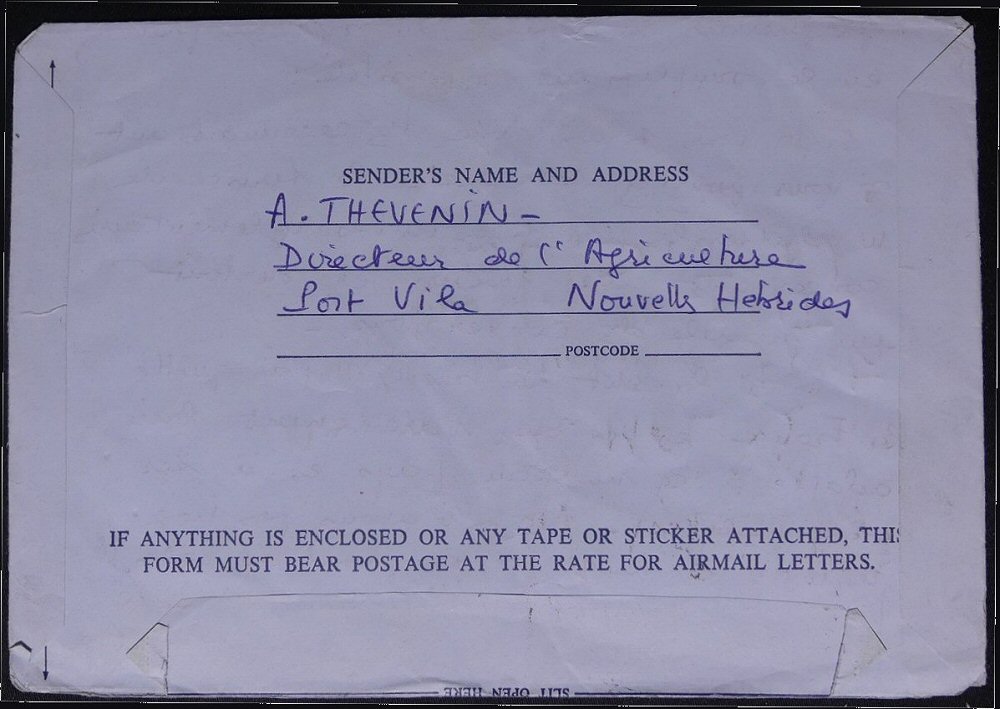 SENDER'S NAME AND ADDRESS
A. THEVENIN -
Directeur de l' Agriculture
Port Vila Nouvelles Hebrides
POSTCODE
IF ANYTHING IS ENCLOSED OR ANY TAPE OR STICKER ATTACHED, THIS
FORM MUST BEAR POSTAGE AT THE RATE FOR AIRMAIL LETTERS.
SLIT OPEN HERE